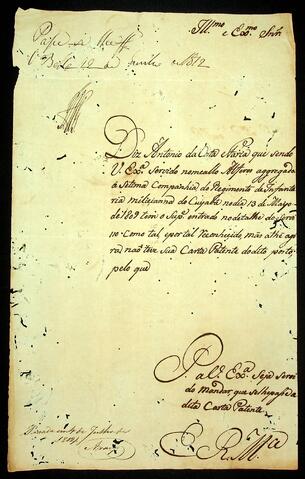 Ill.mo e Ex.mo Snr.
Passe
12 de 1812
Diz Antonio da Costa Maria que sendo
V. Ex.ª servido nomeallo Alferes aggregado
á Setima Companhia do Regimento de Infante
ria miliçianno do Cuyabá no dia 13 de Mayo
de 1809 tem o Sup.e entrado no detalhe do Servi
so como tal eportal reconhecido, mas athe ago
ra não teve Sua Carta Patente do dito porto,
pelo que
P. a V. Ex.ª Seja Servi
do mandar, que se lhe passe a
dita Carta Patente.
E. R. M.ce
de Julho de